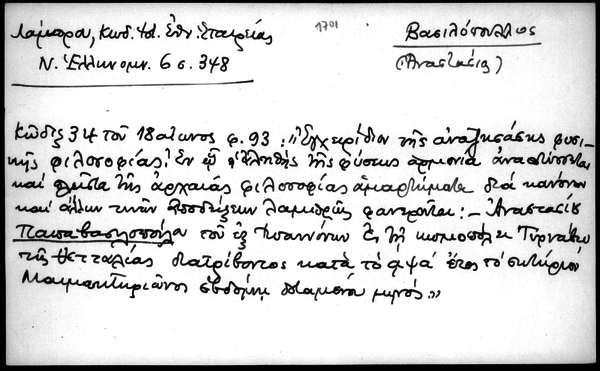 Λάμπρου, Κωδ. Ιστ. Εθν. Εταιρείας
1701
Βασιλόπουλλος
Ν. Ἑλληνομν. 6 σ. 348
(Ἀναστάσιος)
Κῶδιξ 34 τοῦ 18 αἰῶνος φ. 93: "Ἐγχειρίδιον τῆς ἀναζησάσης φυσι-
κῆς φιλοσοφίας, Ἐν ᾧ ἡ ἀληθὴς τῆς φύσεως ἁρμονία ἀναπτύσσεται
καὶ πλεῖστα τῆς ἀρχαίας φιλοσοφίας ἁμαρτήματα διὰ κανόνων
καὶ ἄλλων τινῶν ἀποδείξεων λαμπρῶς φανεροῦται: – Ἀναστασίου
Παπαβασιλοπούλου τοῦ ἐξ Ἰωαννίνων ἐν τῇ κωμοπόλει Τυρνάβῳ
τῆς Θετταλίας διατρίβοντος κατὰ τὸ αψά ἔτος τὸ σωτήριον
Μαιμακτηριῶνος ἑβδόμῃ ἱσταμένου μηνός."